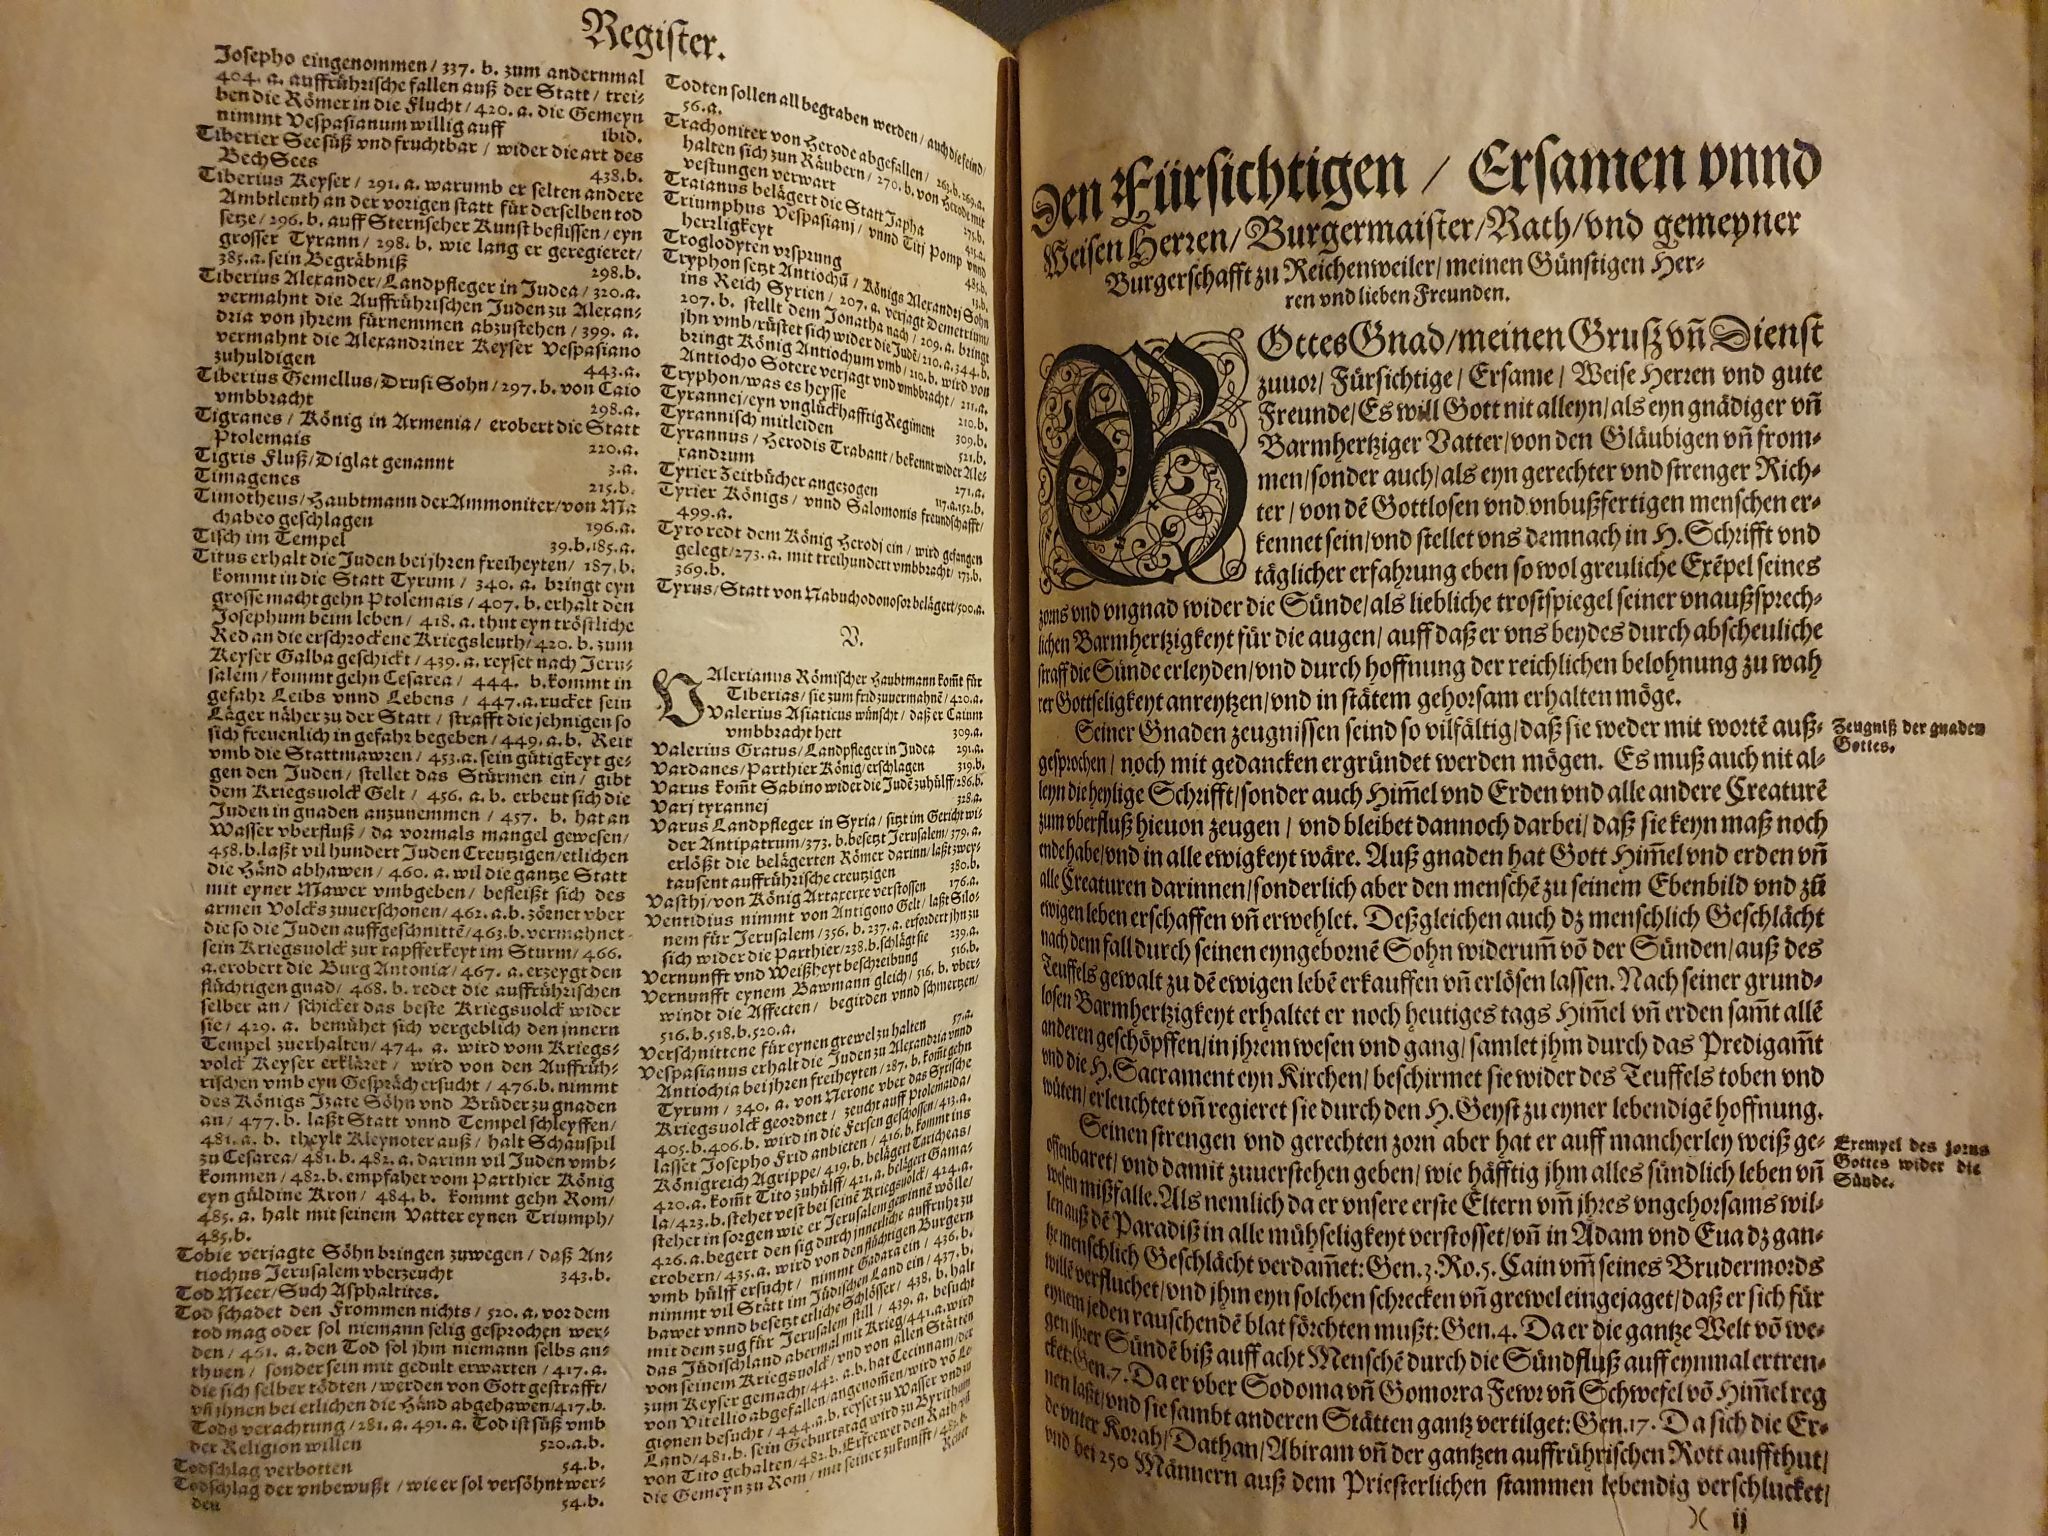 Register.
Josepho eingenommen / 337. b. zum andernmal
404. a. auffrührische fallen auß der Statt / trei-
ben die Römer in die Flucht / 420. a. die Gemeyn
nimmt Vespasianum willig auff ibid.
Tiberier See süß vnd fruchtbar / wider die art des
Bech Sees 438.b.
Tiberius Keyser / 291. a. warumb er selten andere
Ambtleuth an der vorigen statt für derselben tod
setze / 296. b. auff Sternseher Kunst beflissen / eyn
grosser Tyrann / 298. b. wie lang er geregieret /
385.a. sein Begräbniß 298.b.
Tiberius Alexander / Landpfleger in Judea / 320.a.
vermahnt die Auffrührischen Juden zu Alexan-
dria von jhrem fürnemmen abzustehen / 399. a.
vermahnt die Alexandriner Keyser Vespasiano
zuhuldigen 443.a.
Tiberius Gemellus / Drusi Sohn / 297. b. von Caio
vmbbracht 298.a.
Tigranes / König in Armenia / erobert die Statt
Ptolemais 220.a.
Tigris Fluß / Diglat genannt 3.a.
Timagenes 215.b.
Timotheus / Haubtmann der Ammoniter / von Ma
chabeo geschlagen 196.a.
Tisch im Tempel 39.b.185.a.
Titus erhalt die Juden bei jhren freiheyten / 187.b.
kommt in die Statt Tyrum / 340. a. bringt eyn
grosse macht gehn Ptolemais / 407. b. erhalt den
Josephum beim leben / 418. a. thut eyn tröstliche
Red an die erschrockene Kriegsleuth / 420. b. zum
Keyser Galba geschickt / 439. a. reyset nach Jeru-
salem / kommt gehn Cesarea / 444. b. kommt in
gefahr Leibs vnnd Lebens / 447.a. rucket sein
Läger näher zu der Statt / strafft die jehnigen so
sich freuenlich in gefahr begeben / 449.a.b. Reit
vmb die Stattmawren / 453.a. sein gütigkeyt ge-
gen den Juden / stellet das Stürmen ein / gibt
dem Kriegsuolck Gelt / 456. a. b. erbeut sich die
Juden in gnaden anzunemmen / 457. b. hat an
Wasser vberfluß / da vormals mangel gewesen /
458.b. laßt vil hundert Juden Creutzigen / etlichen
die Händ abhawen / 460. a. wil die gantze Statt
mit eyner Mawer vmbgeben / befleißt sich des
armen Volcks zuuerschonen / 462.a.b. zörnet vber
die so die Juden auffgeschnittē / 463.b. vermahnet
sein Kriegsuolck zur tapfferkeyt im Sturm / 466.
a. erobert die Burg Antoniæ / 467. a. erzeygt den
flüchtigen gnad / 468. b. redet die auffrührischen
selber an / schicket das beste Kriegsuolck wider
sie / 429. a. bemühet sich vergeblich den jnnern
Tempel zuerhalten / 474. a. wird vom Kriegs-
volck Keyser erkläret / wird von den Auffrüh-
rischen vmb eyn Gespräch ersucht / 476.b. nimmt
des Königs Izate Söhn vnd Brüder zu gnaden
an / 477. b. laßt Statt vnnd Tempel schleyffen /
481. a. b. theylt Kleynoter auß / halt Schauspil
zu Cesarea / 481. b. 482. a. darinn vil Juden vmb-
kommen / 482.b. empfahet vom Parthier König
eyn güldine Kron / 484. b. kommt gehn Rom /
485. a. halt mit seinem Vatter eynen Triumph /
485.b.
Tobie verjagte Söhn bringen zuwegen / daß An-
tiochus Jerusalem vberzeucht 343.b.
Tod Meer / Such Asphaltites.
Tod schadet den Frommen nichts / 520. a. vor dem
tod mag oder sol niemann selig gesprochen wer-
den / 461. a. den Tod sol jhm niemann selbs an-
thuen / sonder sein mit gedult erwarten / 417. a.
die sich selber tödten / werden von Gott gestrafft /
vñ jhnen bei etlichen die Händ abgehawen / 417.b.
Tods verachtung / 281. a. 491. a. Tod ist süß vmb
der Religion willen 520.a.b.
Todschlag verbotten 54.b.
Todschlag der vnbewußt / wie er sol versöhnt wer-
den 54.b.
Todten sollen all begraben werden / auch die feind /
56.a.
Trachoniter von Herode abgefallen / 263.b.269.a.
halten sich zun Räubern / 270. b. von Herode mit
vestungen verwart 275.b.
Traianus belägert die Statt Japha 415.a.
Triumphus Vespasianj / vnnd Titj Pomp vnnd
herrligkeyt 485.b.
Troglodyten vrsprung 13.b.
Tryphon setzt Antiochū / Königs Alexandrj Sohn
ins Reich Syrien / 207. a. verjagt Demetrium /
207. b. stellt dem Jonatha nach / 209. a. bringt
jhn vmb / rüstet sich wider die Judē / 210. a. 344.b.
bringt König Antiochum vmb / 210. b. wird von
Antiocho Sotere verjagt vnd vmbbracht / 211.a.
Tryphon / was es heysse 210.b.
Tyrannej / eyn vnglückhafftig Regiment 309.b.
Tyrannisch mitleiden 521.b.
Tyrannus / Herodis Trabant / bekennt wider Ale-
xandrum 271.a.
Tyrier Zeitbücher angezogen 117.a.152.b.
Tyrier Königs / vnnd Salomonis freundschafft /
499.a.
Tyro redt dem König Herodj ein / wird gefangen
gelegt / 273. a. mit treihundert vmbbracht / 173.b.
369.b.
Tyrus / Statt von Nabuchodonosor belägert / 500.a.
V.
VAlerianus Römischer Haubtmann kom̄t für
Tiberias / sie zum frid zuuermahnē / 420.a.
Valerius Asiaticus wünscht / daß er Caium
vmbbracht hett 309.a.
Valerius Gratus / Landpfleger in Judea 291.a.
Vardanes / Parthier König / erschlagen 319.b.
Varus kom̄t Sabino wider die Judē zuhülff / 286.b.
Varj tyrannej 328.a.
Varus Landpfleger in Syria / sitzt im Gericht wi-
der Antipatrum / 373. b. besetzt Jerusalem / 379. a.
erlößt die belägerten Römer darinn / laßt zwey-
tausent auffrührische creutzigen 380.b.
Vasthj / von König Artaxerxe verstossen 176.a.
Ventidius nimmt von Antigono Gelt / laßt Silo-
nem für Jerusalem / 356. b. 237. a. erfordert jhn zu
sich wider die Parthier / 238.b. schlägt sie 239.a.
Vernunfft vnd Weißheyt beschreibung 516.b.
Vernunfft eynem Bawmann gleich / 516. b. vber-
windt die Affecten / begirden vnnd schmertzen /
516.b.518.b.520.a.
Verschnittene für eynen grewel zu halten 57.a.
Vespasianus erhalt die Juden zu Alexandria vnnd
Antiochia bei jhren freiheyten / 287. b. kom̄t gehn
Tyrum / 340. a. von Nerone vber das Syrische
Kriegsuolck geordnet / zeucht auff Ptolemaida /
405.b.406.b. wird in die Fersen geschossen / 413.a.
lasset Josepho Frid anbieten / 416.b. kom̄t ins
Königreich Agrippe / 419. b. belägert Taricheas /
420.a. kom̄t Tito zuhülff / 421. a. belägert Gama-
la / 423.b. stehet vest bei seinē Kriegsuolck / 424.a.
stehet in sorgen wie er Jerusalem gewinnē wölle /
426. a. begert den sig durch jnnerliche auffruhr zu
erobern / 435.a. wird von den flüchtigen Burgern
vmb hülff ersucht / nimmt Gadara ein / 436.b.
nimmt vil Stätt im Jüdischen Land ein / 437.b.
bawet vnnd besetzt etliche Schlösser / 438. b. halt
mit dem zug für Jerusalem still / 439. a. besucht
das Jüdischland abermal mit Krieg / 441.a. wird
von seinem Kriegsuolck / vnd von allen Stätten
zum Keyser gemacht / 442. a.b. hat Cecinnam / der
von Vitellio abgefallen / angenom̄en / wird vō Le-
gionen besucht / 444.a.b. reyset zu Wasser vnd zu
Land / 481.b. sein Geburtstag wird zu Byrithum
von Tito gehalten / 482.b. Erfrewet den Rath vñ
die Gemeyn zu Rom / mit seiner zukunfft / 483.b.
Reuet
Den Fürsichtigen / Ersamen vnnd
Weisen Herren / Burgermaister / Rath / vnd gemeyner
Burgerschafft zu Reichenweiler / meinen Günstigen Her-
ren vnd lieben Freunden.
GOttes Gnad / meinen Gruß vñ Dienst
zuuor / Fürsichtige / Ersame / Weise Herren vnd gute
Freunde / Es will Gott nit alleyn / als eyn gnädiger vñ
Barmhertziger Vatter / von den Gläubigen vñ from-
men / sonder auch / als eyn gerechter vnd strenger Rich-
ter / von dē Gottlosen vnd vnbußfertigen menschen er-
kennet sein / vnd stellet vns demnach in H. Schrifft vnd
täglicher erfahrung eben so wol greuliche Exēpel seines
zorns vnd vngnad wider die Sünde / als liebliche trostspiegel seiner vnaußsprech-
lichen Barmhertzigkeyt für die augen / auff daß er vns beydes durch abscheuliche
straff die Sünde erleyden / vnd durch hoffnung der reichlichen belohnung zu wah
rer Gottseligkeyt anreytzen / vnd in stätem gehorsam erhalten möge.
Seiner Gnaden zeugnissen seind so vilfältig / daß sie weder mit wortē auß-
gesprochen / noch mit gedancken ergründet werden mögen. Es muß auch nit al-
leyn die heylige Schrifft / sonder auch Him̄el vnd Erden vnd alle andere Creaturē
zum vberfluß hieuon zeugen / vnd bleibet dannoch darbei / daß sie keyn maß noch
ende habe / vnd in alle ewigkeyt wäre. Auß gnaden hat Gott Him̄el vnd erden vñ
alle Creaturen darinnen / sonderlich aber den menschē zu seinem Ebenbild vnd zū
ewigen leben erschaffen vñ erwehlet. Deßgleichen auch dz menschlich Geschlächt
nach dem fall durch seinen eyngebornē Sohn widerum̄ vō der Sünden / auß des
Teuffels gewalt zu dē ewigen lebē erkauffen vñ erlösen lassen. Nach seiner grund-
losen Barmhertzigkeyt erhaltet er noch heutiges tags Him̄el vñ erden sam̄t allē
anderen geschöpffen / in jhrem wesen vnd gang / samlet jhm durch das Predigam̄t
vnd die H. Sacrament eyn Kirchen / beschirmet sie wider des Teuffels toben vnd
wüten / erleuchtet vñ regieret sie durch den H. Geyst zu eyner lebendigē hoffnung.
Seinen strengen vnd gerechten zorn aber hat er auff mancherley weiß ge-
offenbaret / vnd damit zuuerstehen geben / wie häfftig jhm alles sündlich leben vñ
wesen mißfalle. Als nemlich da er vnsere erste Eltern vm̄ jhres vngehorsams wil-
len auß dē Paradiß in alle mühseligkeyt verstosset / vñ in Adam vnd Eua dz gan-
tze menschlich Geschlächt verdam̄et: Gen. 3. Ro. 5. Cain vm̄ seines Brudermords
willē verfluchet / vnd jhm eyn solchen schrecken vñ grewel eingejaget / daß er sich für
eynem jeden rauschendē blat förchten mußt: Gen. 4. Da er die gantze Welt vō we-
gen jhrer Sündē biß auff acht Menschē durch die Sündfluß auff eynmal ertren-
cket: Gen. 7. Da er vber Sodoma vñ Gomorra Fewr vñ Schwefel vō Him̄el reg
nen laßt / vnd sie sambt anderen Stätten gantz vertilget: Gen. 17. Da sich die Er-
de vnter Korah / Dathan / Abiram vñ der gantzen auffrührischen Rott auffthut /
vnd bei 250 Männern auß dem Priesterlichen stammen lebendig verschlucket /
Zeugniß der gnaden
Gottes.
Exempel des zorns
Gottes wider die
Sünde.
)( ij